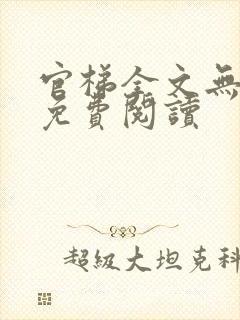 官梯全文無
免費閱讀
超級大坦克科